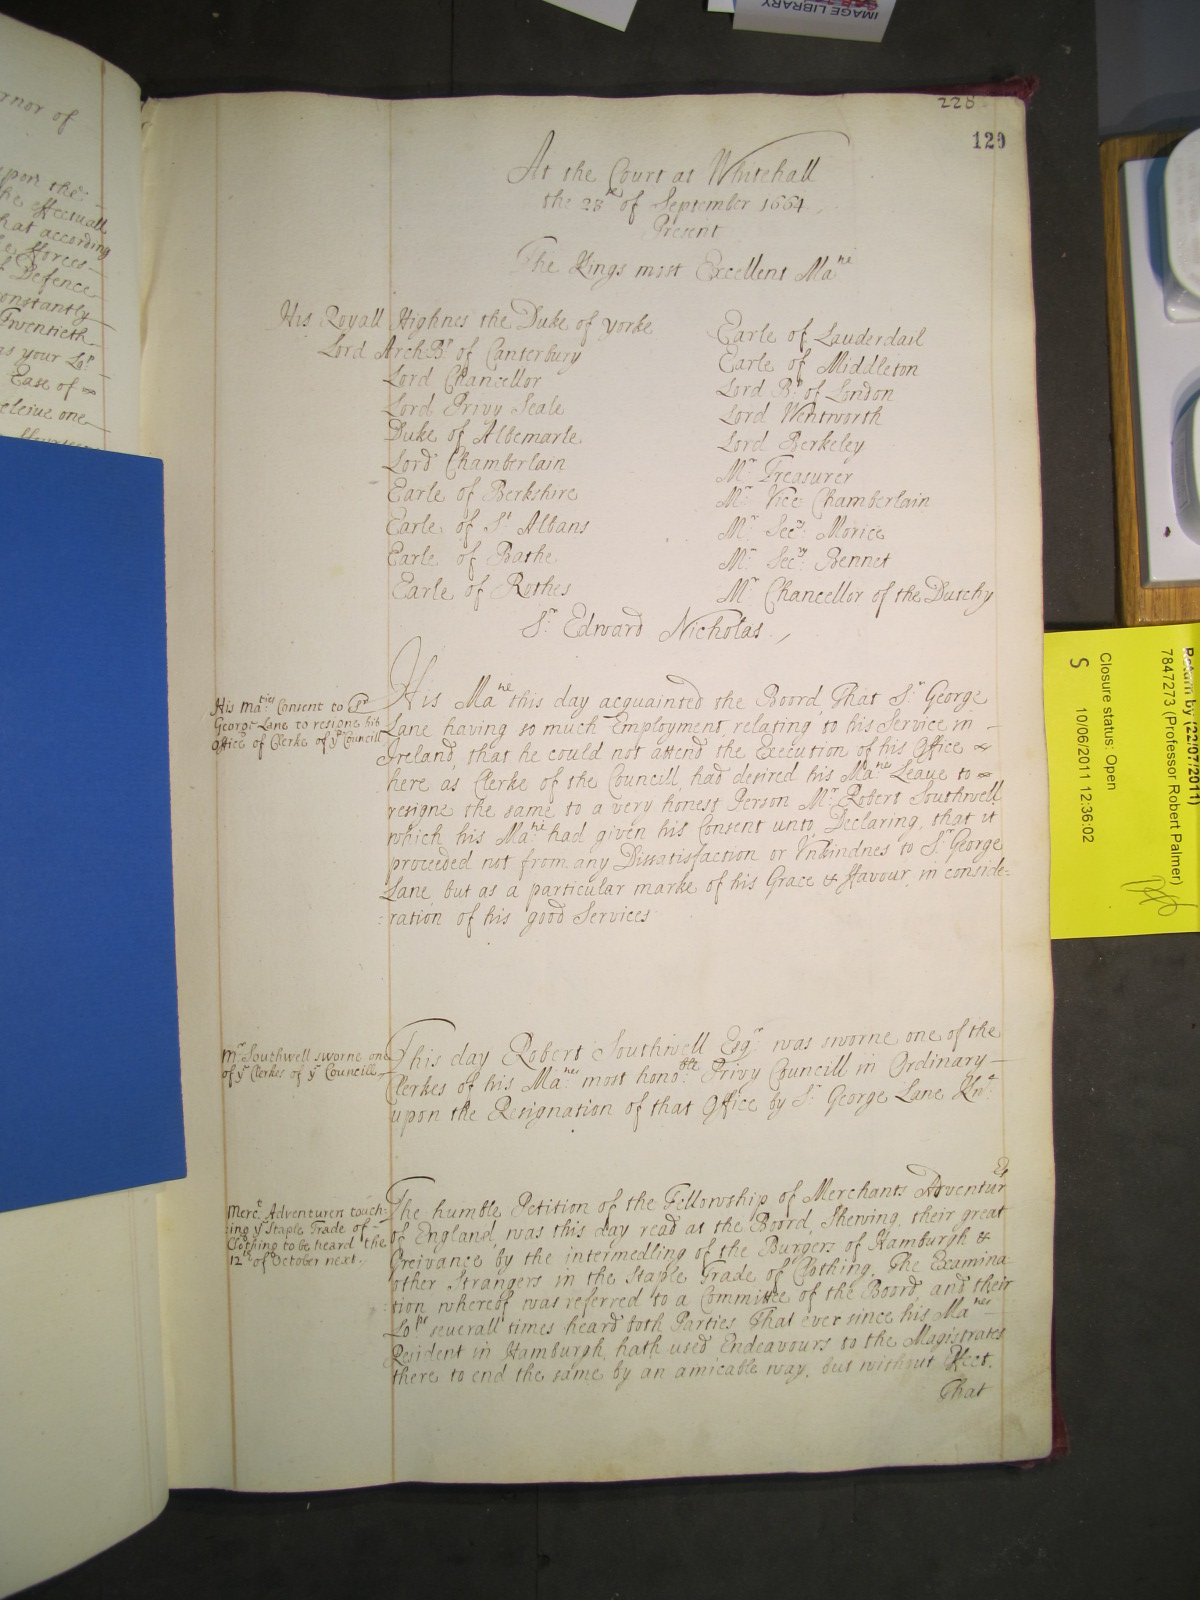 IMAGE LIBRARY
rnor of
upon the
the effectuall
that according
fforces
Defence
constantly
Twentieth
as your Lo:ps
Ease of
receive one
228
129
At the Court at Whitehall
the 23th of September 1664
Present
The Kings most Excellent Ma:tie
His Royall Highnes the Duke of yorke
Lord ArchBp of Canterbury
Lord Chancellor
Lord Privy Seale
Duke of Albemarle
Lord Chamberlain
Earle of Berkshire
Earle of St Albans
Earle of Bathe
Earle of Rothes
Earle of Lauderdail
Earle of Middleton
Lord Bp of London
Lord Wentworth
Lord Berkeley
Mr Treasurer
Mr Vice Chamberlain
Mr Secry: Morice
Mr Secry: Bennet
Mr Chancellor of the Dutchy
Sr Edward Nicholas
His Ma:ties Consent to Sr
George Lane to resigne his
Office of Clerke of ye Councill
His Ma:tie this day acquainted the Boord, That Sr George
Lane having so much Employment, relating to his Service in
Ireland, that he could not attend the Execution of his Office
here as Clerke of the Councill, had desired his Ma:ties Leave to
resigne the same to a very honest Person Mr Robert Southwell
which his Ma:tie had given his Consent unto, Declaring, that it
proceeded not from any Dissatisfaction or Vnkindnes to Sr George
Lane, but as a particular marke of his Grace & ffavour, in conside:
:ration of his good Services
Mr Southwell sworne one
of ye Clerkes of ye Councill
This day Robert Southwell Esqr: was sworne one of the
Clerkes of his Ma:ties most hono:ble Privy Councill in Ordinary
upon the Resignation of that Office by Sr George Lane Knt:
Merct Adventurers touch:
ing ye Staple Trade of
Clothing to be heard the
12th of October next.
The humble Petition of the Fellowship of Merchants Adventurrs
of England, was this day read at the Boord, Shewing, their great
Greivance by the intermedling of the Burgers of Hamburgh &
other Strangers in the Staple Trade of Clothing. The Examina:
:tion whereof was referred to a Committee of the Board, and their
Lo:pps severall times heard both Parties That ever since his Ma:ties
Resident in Hamburgh, hath used Endeavours to the Magistrates
there to end the same by an amicable way, but without Effect.
That
Return by (22/07/2011)
7847273 (Professor Robert Palmer)
Closure status: Open
S 10/06/2011 12:36:02